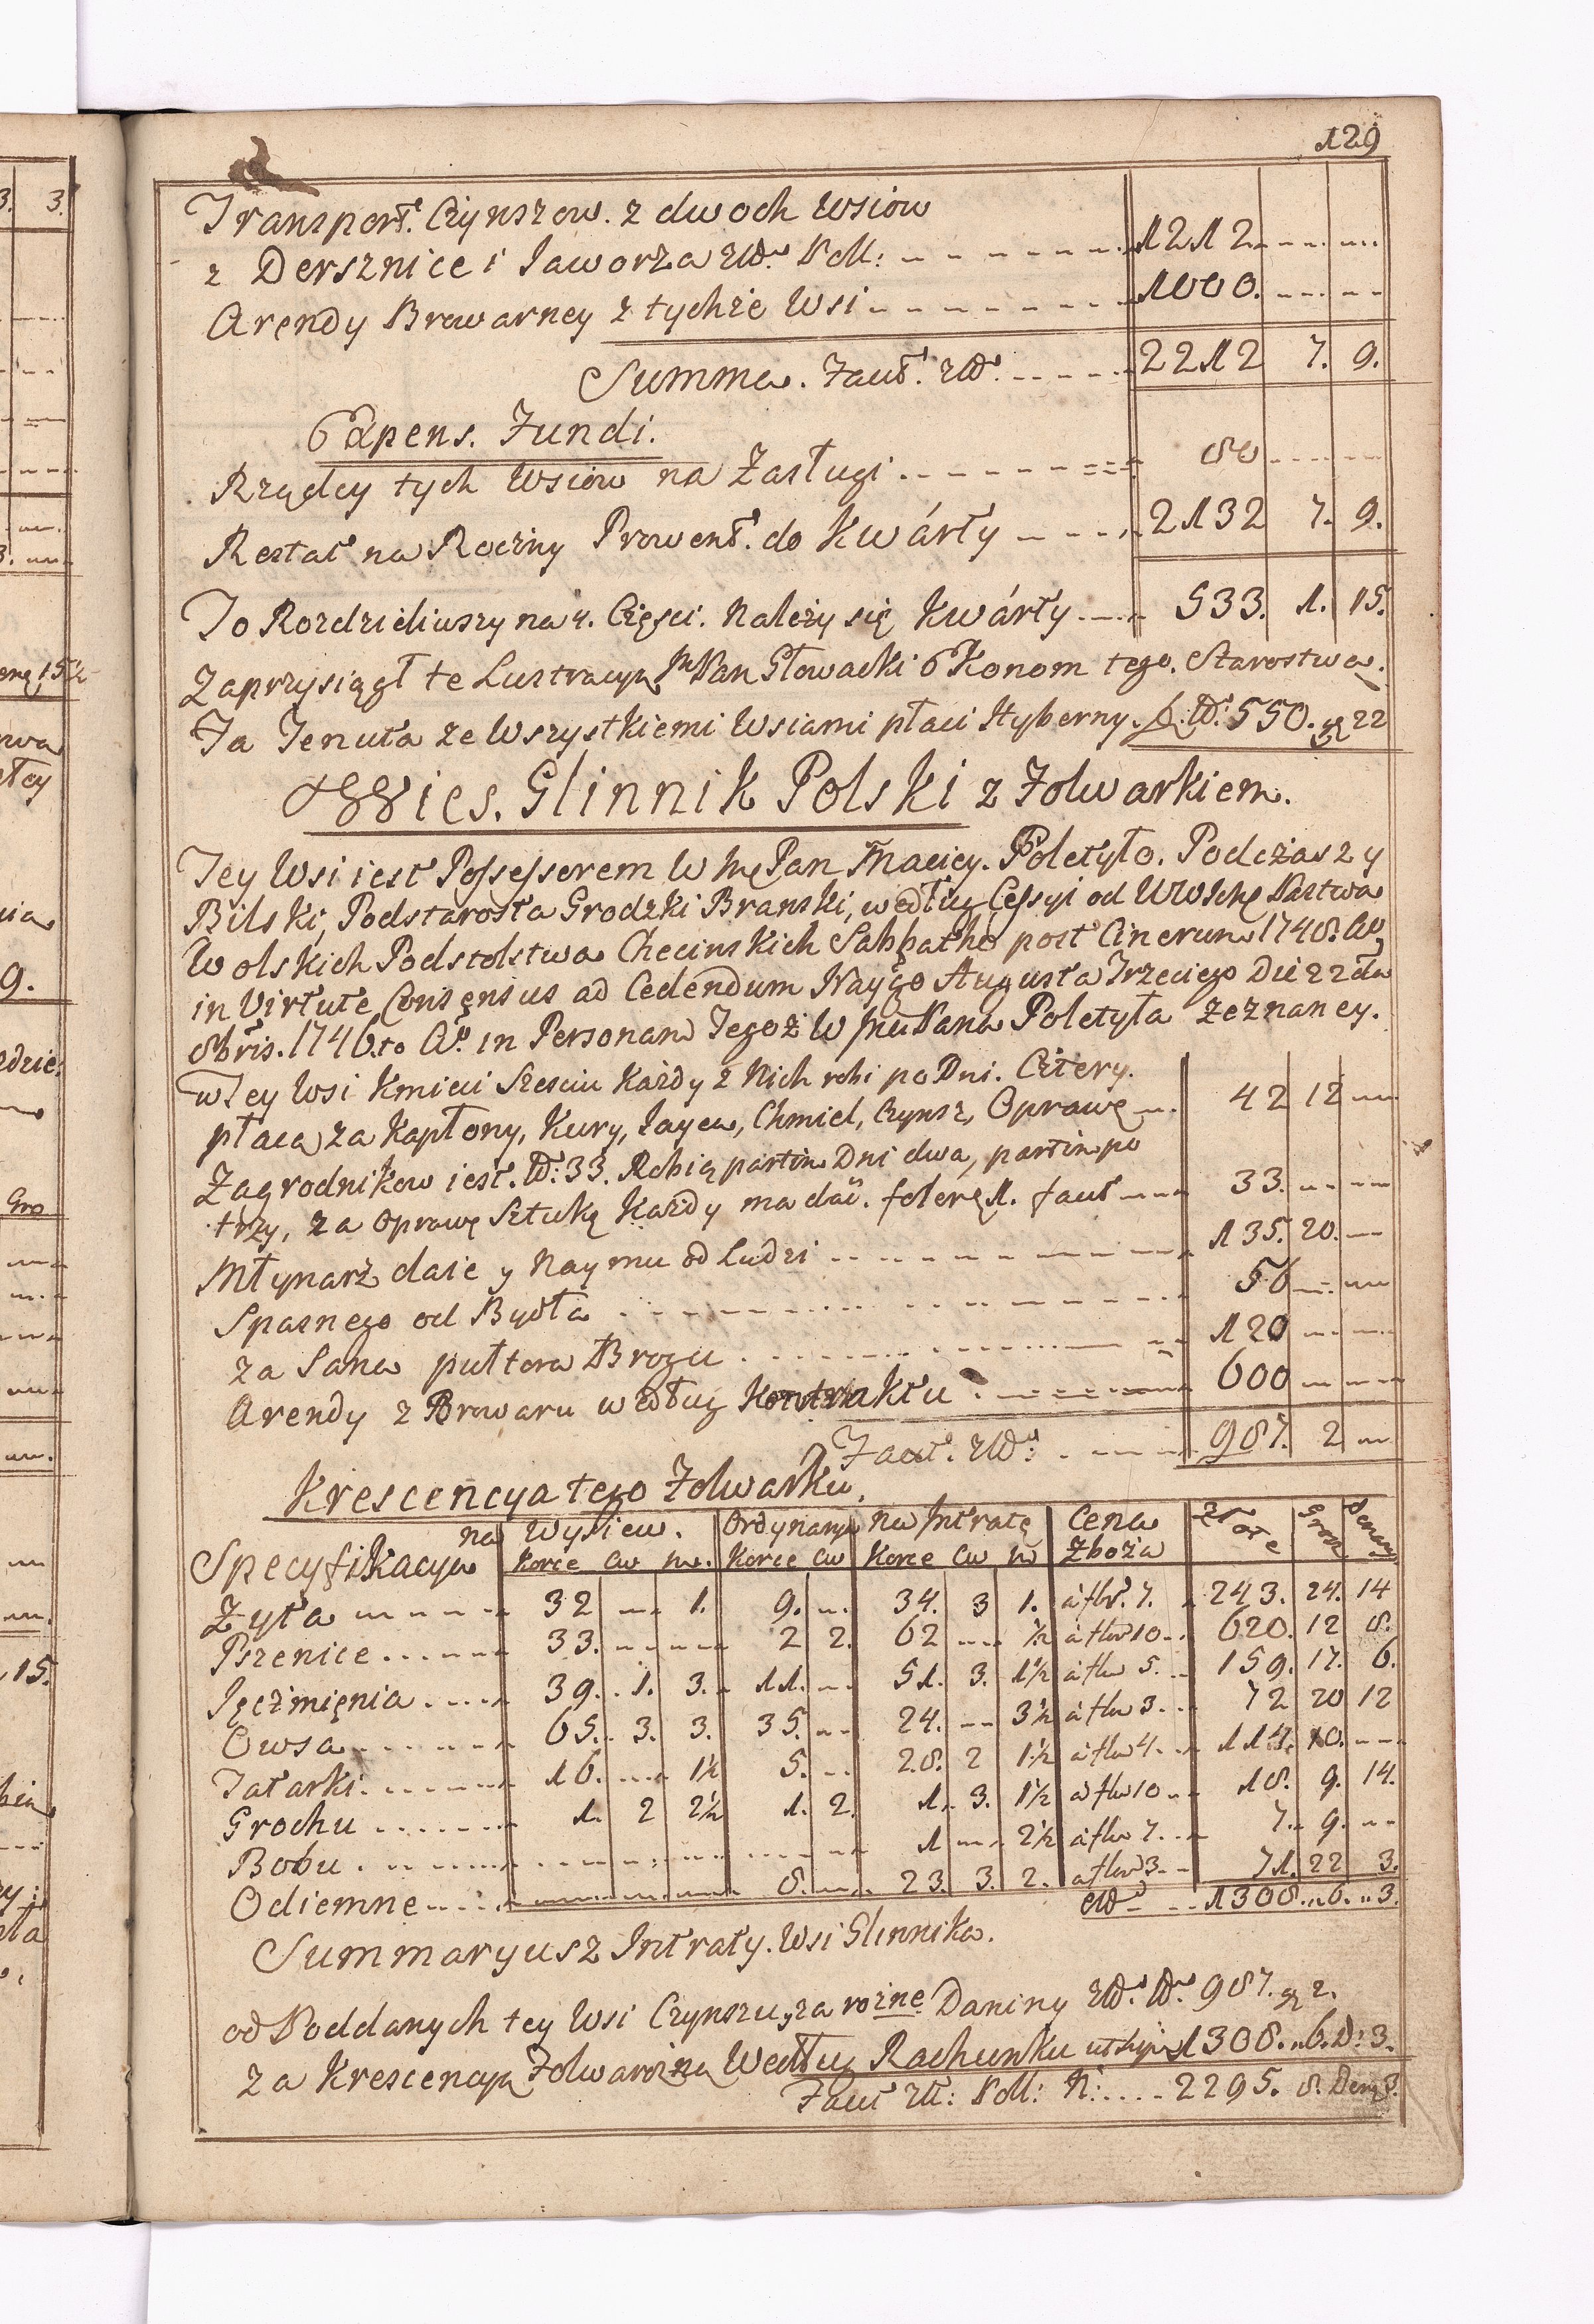 129
Transport. Czynszow. z dwoch Wsiow
z Dersznice i Jaworza Poll: 1212
Arendy Browarney z tychże Wsi 1000.
Summa. Facit. 2212 7. 9.
Expens. Fundi.
Rządcy tych Wsiow na Zasługi 80
Restat na Roczny Prowent. do Kwárty 2132 7. 9.
To Rozdzieliwszy na 4. Części. Należy się Kwárty 533. 1. 15.
Zaprzysiągł te Lustracyą Pan Głowacki Ekonom tego Starostwa.
Ta Tenuta ze Wszystkiemi Wsiami płaci Hyberny 550. gr 22
Wies. Glinnik Polski z Folwarkiem.
Tey Wsi iest Possessorem W Pan Maciey. Poletyło. Podczaszy
Bilski, Podstarosta Grodzki Branski, według Cessyi od Państwa
Wolskich Podstolstwa Checinskich Sabbatho post Cinerum 1748.
in Virtute Consensus ad Cedendum Naygo Augusta Trzeciego Die 22da
8bris. 1746.to in Personam Tegoż W Pana Poletyła zeznaney.
w Tey Wsi Kmieci Szesciu Każdy z Nich robi po Dni. Cztery.
płacą za Kapłony, Kury, Jayca, Chmiel, Czynsz, Oprawę 42 12
Zagrodnikow iest. 33. Robią partim Dni dwa, partim po
trzy, za Oprawę Sztukę Każdy ma dać. facit 33.
Młynarz daie y Naymu od Ludzi 135. 20.
Spasnego od Bydła 56
za Siana pułtora Brogu 120
Arendy z Browaru według Kontraktu 600
Facit. 987. 2
Krescencya tego Folwarku
Specyfikacya na Wysiew. Ordynarya na Intratę Cena Zboża Złote Grosz Denary
Korce Cw Korce Cw Korce Cw
Żyta 32 1. 9. 34. 3 1. á flor. 7. 243. 24. 14
Pszenice 33. 2 2. 62 ½ á flor 10 620. 12 8.
Jęczmięnia 39. 1. 3. 11. 51. 3. 1½ á flor 5. 159. 17. 6.
Owsa 65. 3. 3. 35. 24. 3½ á flor 3. 72 20 12
Tatarki. 16. 1½ 5. 28. 2 1½ á flor 4. 114. 10.
Grochu 1. 2 2½ 1. 2. 1. 3. 1½ á flor 10 18. 9. 14.
Bobu. 1 2½ á flor 7. 7. 9.
Odiemne 8. 23. 3. 2. á flor 3. 71. 22 3.
1308. 6. 3.
Summaryusz Intraty. Wsi Glinnika.
od Poddanych tey Wsi Czynszu, za rożne Daniny 987. gr 2.
za Krescencyą Folwarożną Według Rachunku 1308. 6. D: 3.
Facit Poll: 2295. 8. Den 3.